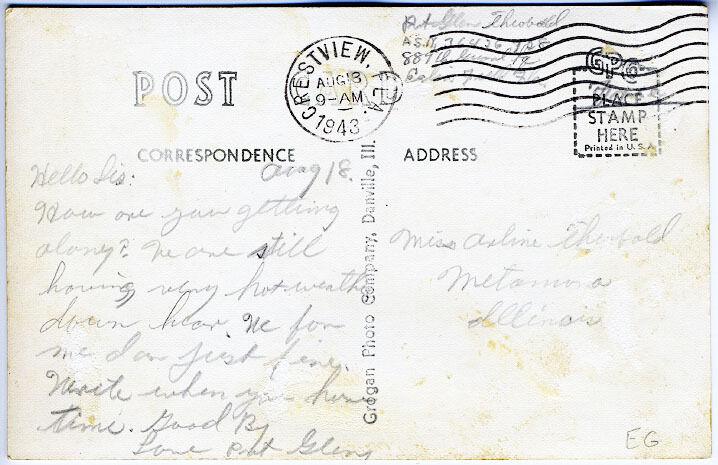 Pvt Glen Theobald
A.S.N. 36436
CRESTVIEW, FLA.
AUG 18
9-AM
1943
POST
GPC
PLACE
STAMP
HERE
Printed in U.S.A.
CORRESPONDENCE
ADDRESS
Aug 18.
Hello Sis:
How are you getting
along? We are still
having very hot weather
down hear. Me for
me I am just fine.
Write when you have
time. Good By
Love Pvt Glen
Grogan Photo Company, Danville, Ill.
Miss Arline Theobald
Metamora
Illinois
EG